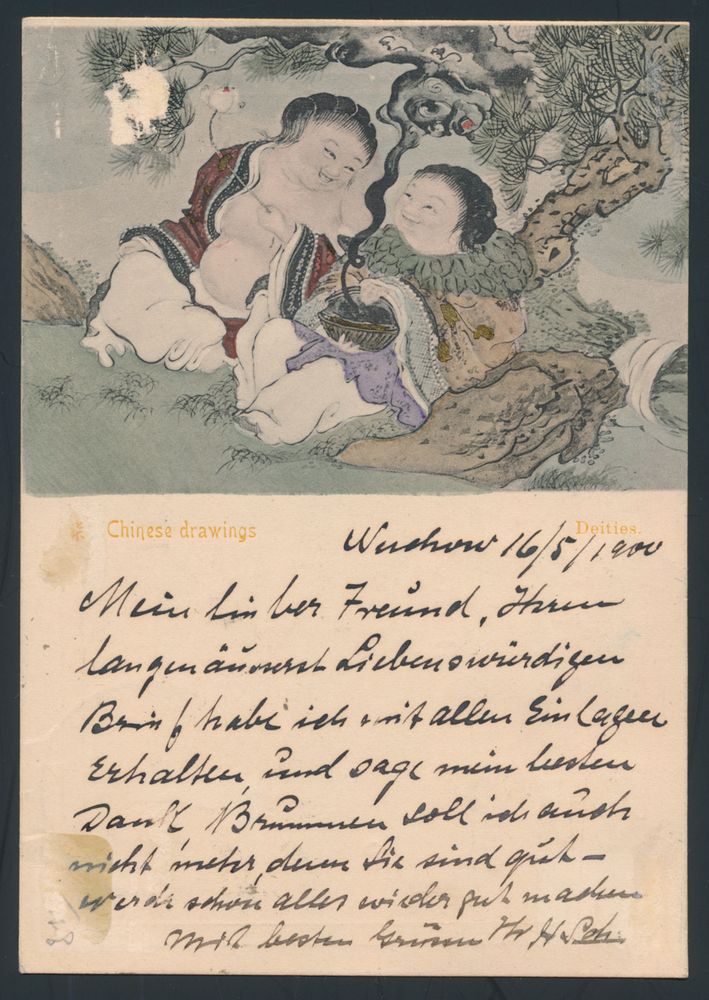 Chinese drawings
Deities.
Wuchow 16/5/1900
Mein lieber Freund, Ihren
langen äusserst Liebenswürdigen
Brief habe ich mit allen Einlagen
Erhalten, und sage mein besten
Dank, Brummen soll ich auch
nicht mehr, denn Sie sind gut -
werde schon alles wieder gut machen
Mit besten Grüssen Ihr H Sch.